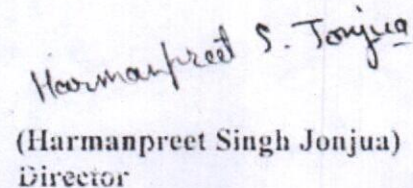 Harmanpreet S. Jonjua
(Harmanpreet Singh Jonjua)
Director